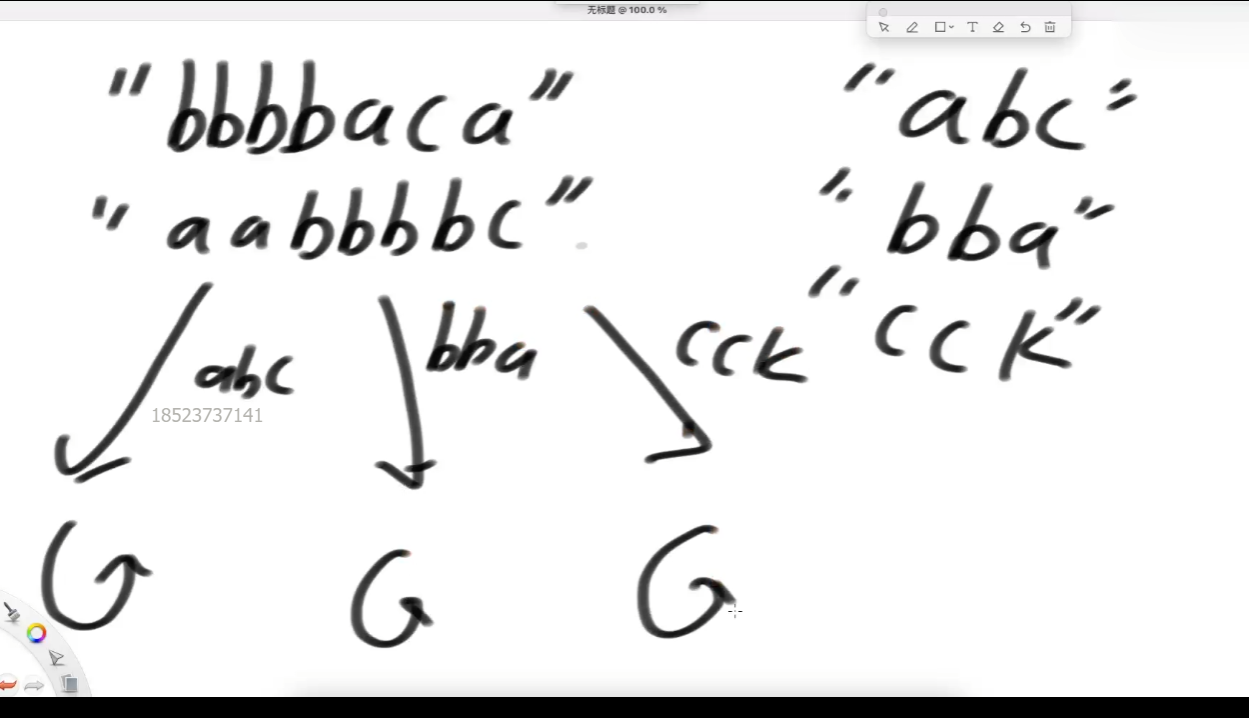 无标题 @ 100.0 %
T
"bbbbaca"
"abc"
"aabbbbc"
"bba"
"cck"
abc
bba
cck
18523737141
G
G
G